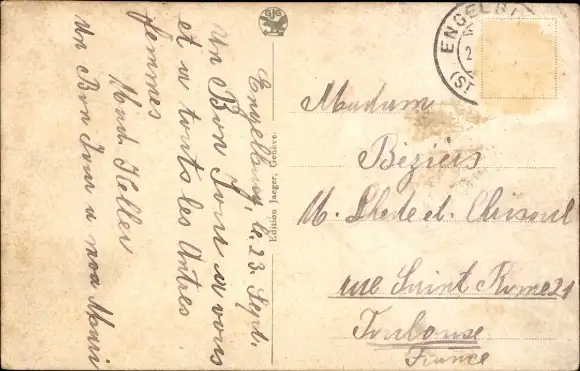 Engelburg, le 23. Sept.
Un Bon Jour a vous
et a touts les Autres
femmes
Mad. Keller
Un Bon Jour a mon Mari
SJG
Edition Jaeger, Genève.
ENGELBU
Madam
Béziers
M. et
rue Saint Rome 21
Toulouse
France